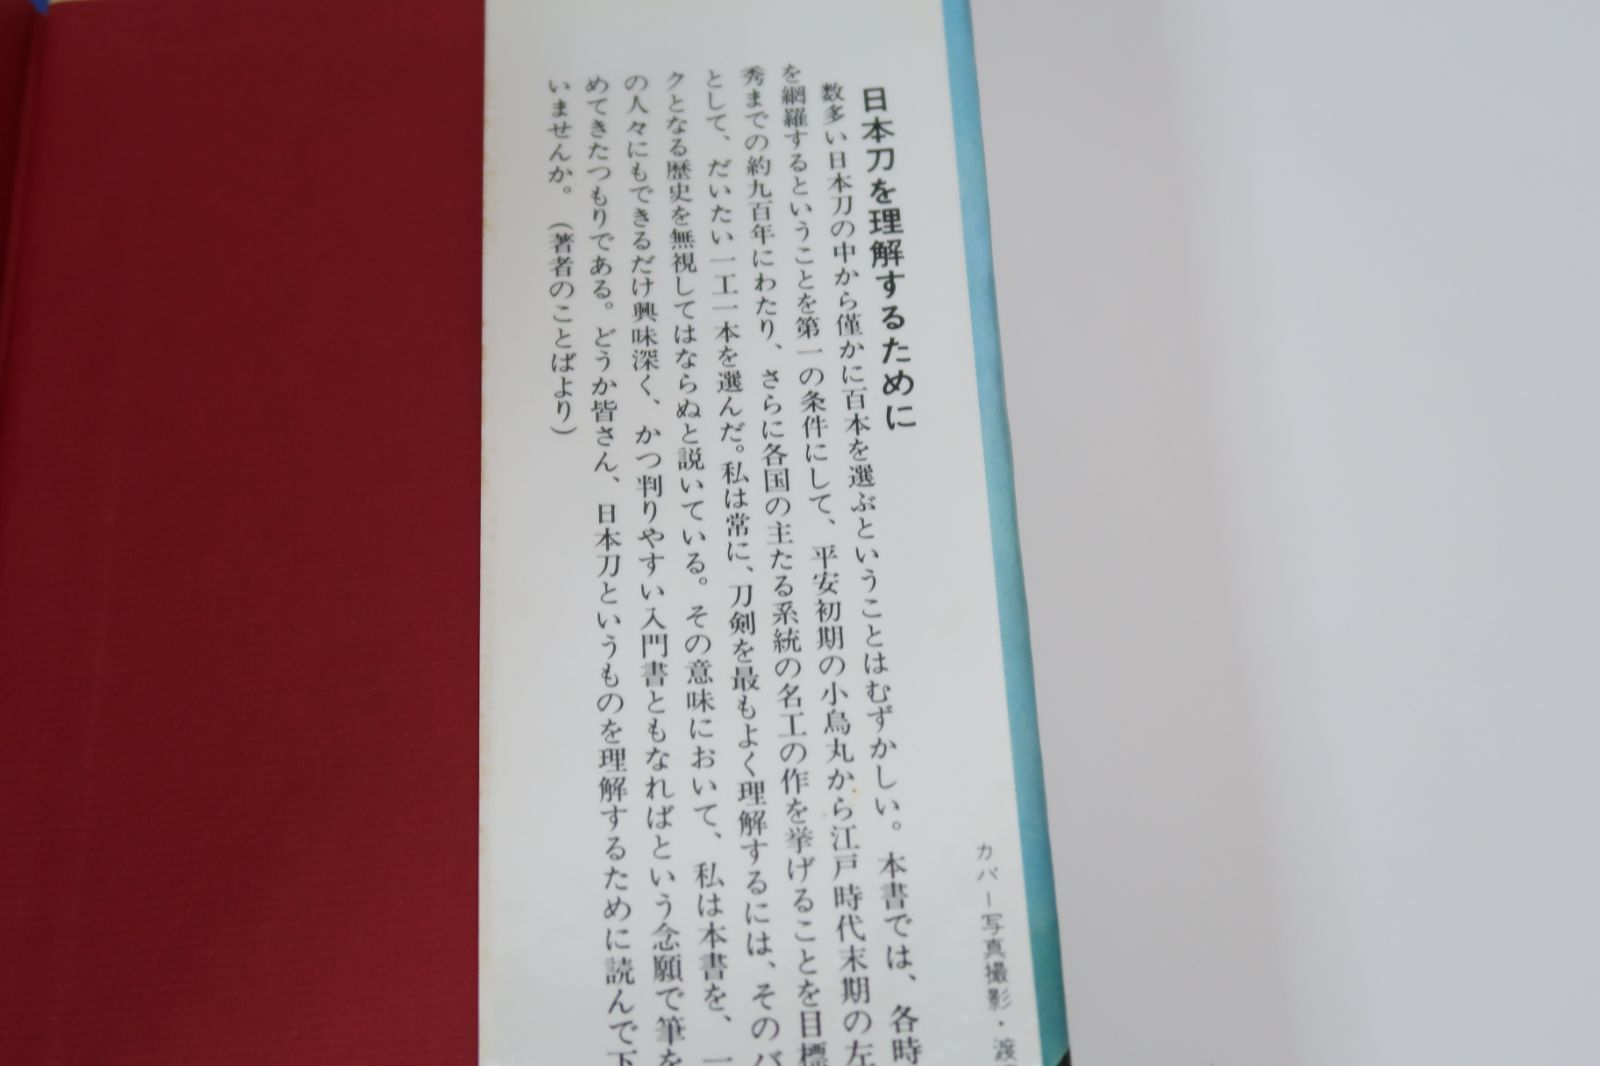 日本刀を理解するために
数多い日本刀の中から僅かに百本を選ぶということはむずかしい。本書では、各時
を網羅するということを第一の条件にして、平安初期の小烏丸から江戸時代末期の左
秀までの約九百年にわたり、さらに各国の主たる系統の名工の作を挙げることを目標
として、だいたい一工一本を選んだ。私は常に、刀剣を最もよく理解するには、そのバ
クとなる歴史を無視してはならぬと説いている。その意味において、私は本書を、一
の人々にもできるだけ興味深く、かつ判りやすい入門書ともなればという念願で筆を
めてきたつもりである。どうか皆さん、日本刀というものを理解するために読んで下
いませんか。（著者のことばより）
カバー写真撮影・渡